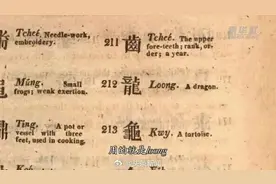 Tchcé. Needle-work,
embroidery.
Múng. Small
frogs; weak exertion.
Ting. A pot or
vessel with three
feet, used in cooking.
211 齒 Tchcé. The upper
fore-teeth; rank, or-
der; a year.
212 龍 Loong. A dragon.
213 龜 Kwy. A tortoise.
用的就是loong